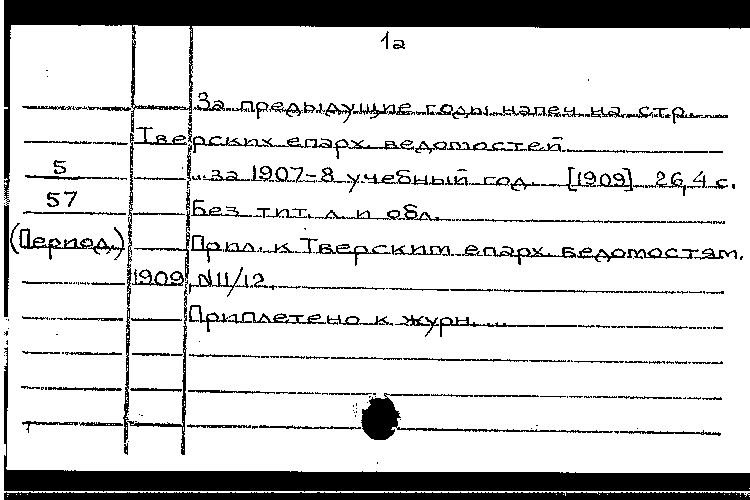 1а
За предыдущие годы напеч на стр.
Тверских епарх. ведомостей
5 ...за 1907-8 учебный год. [1909] 26,4 с.
57 Без тит. л. и обл.
(Период.) Прил. к Тверским епарх. ведомостям.
1909, №11/12.
Приплетено к журн. ...